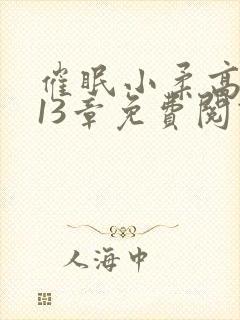 催眠小柔高
13章免費閱
人海中